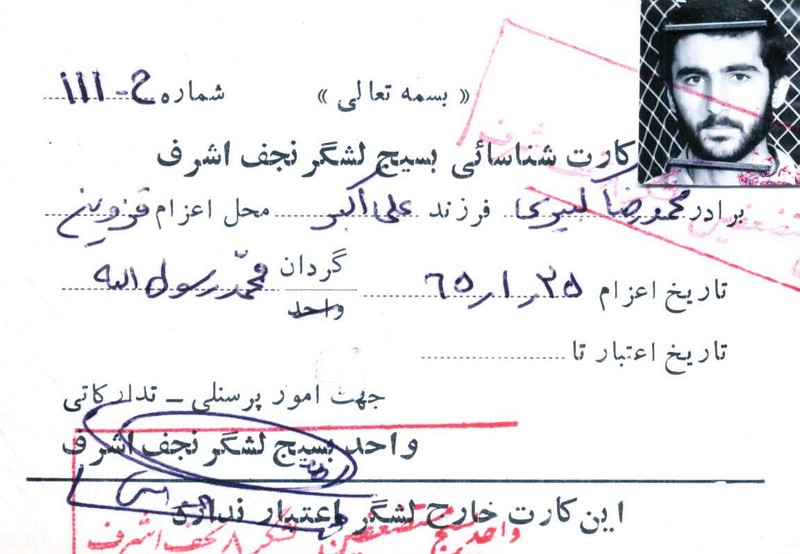 « بسمه تعالی »
شماره ح-۱۱۱
کارت شناسائی بسیج لشگر نجف اشرف
برادر محمدرضا کبیری فرزند علی‌اکبر محل اعزام قزوین
تاریخ اعزام ۲۵ر۱ر۶۵ گردان محمّد رسول الله
واحد
تاریخ اعتبار تا
جهت امور پرسنلی ـ تدارکاتی
واحد بسیج لشگر نجف اشرف
این کارت خارج لشگر اعتبار ندارد
واحد بسیج مستضعفین لشگر ۸ نجف اشرف